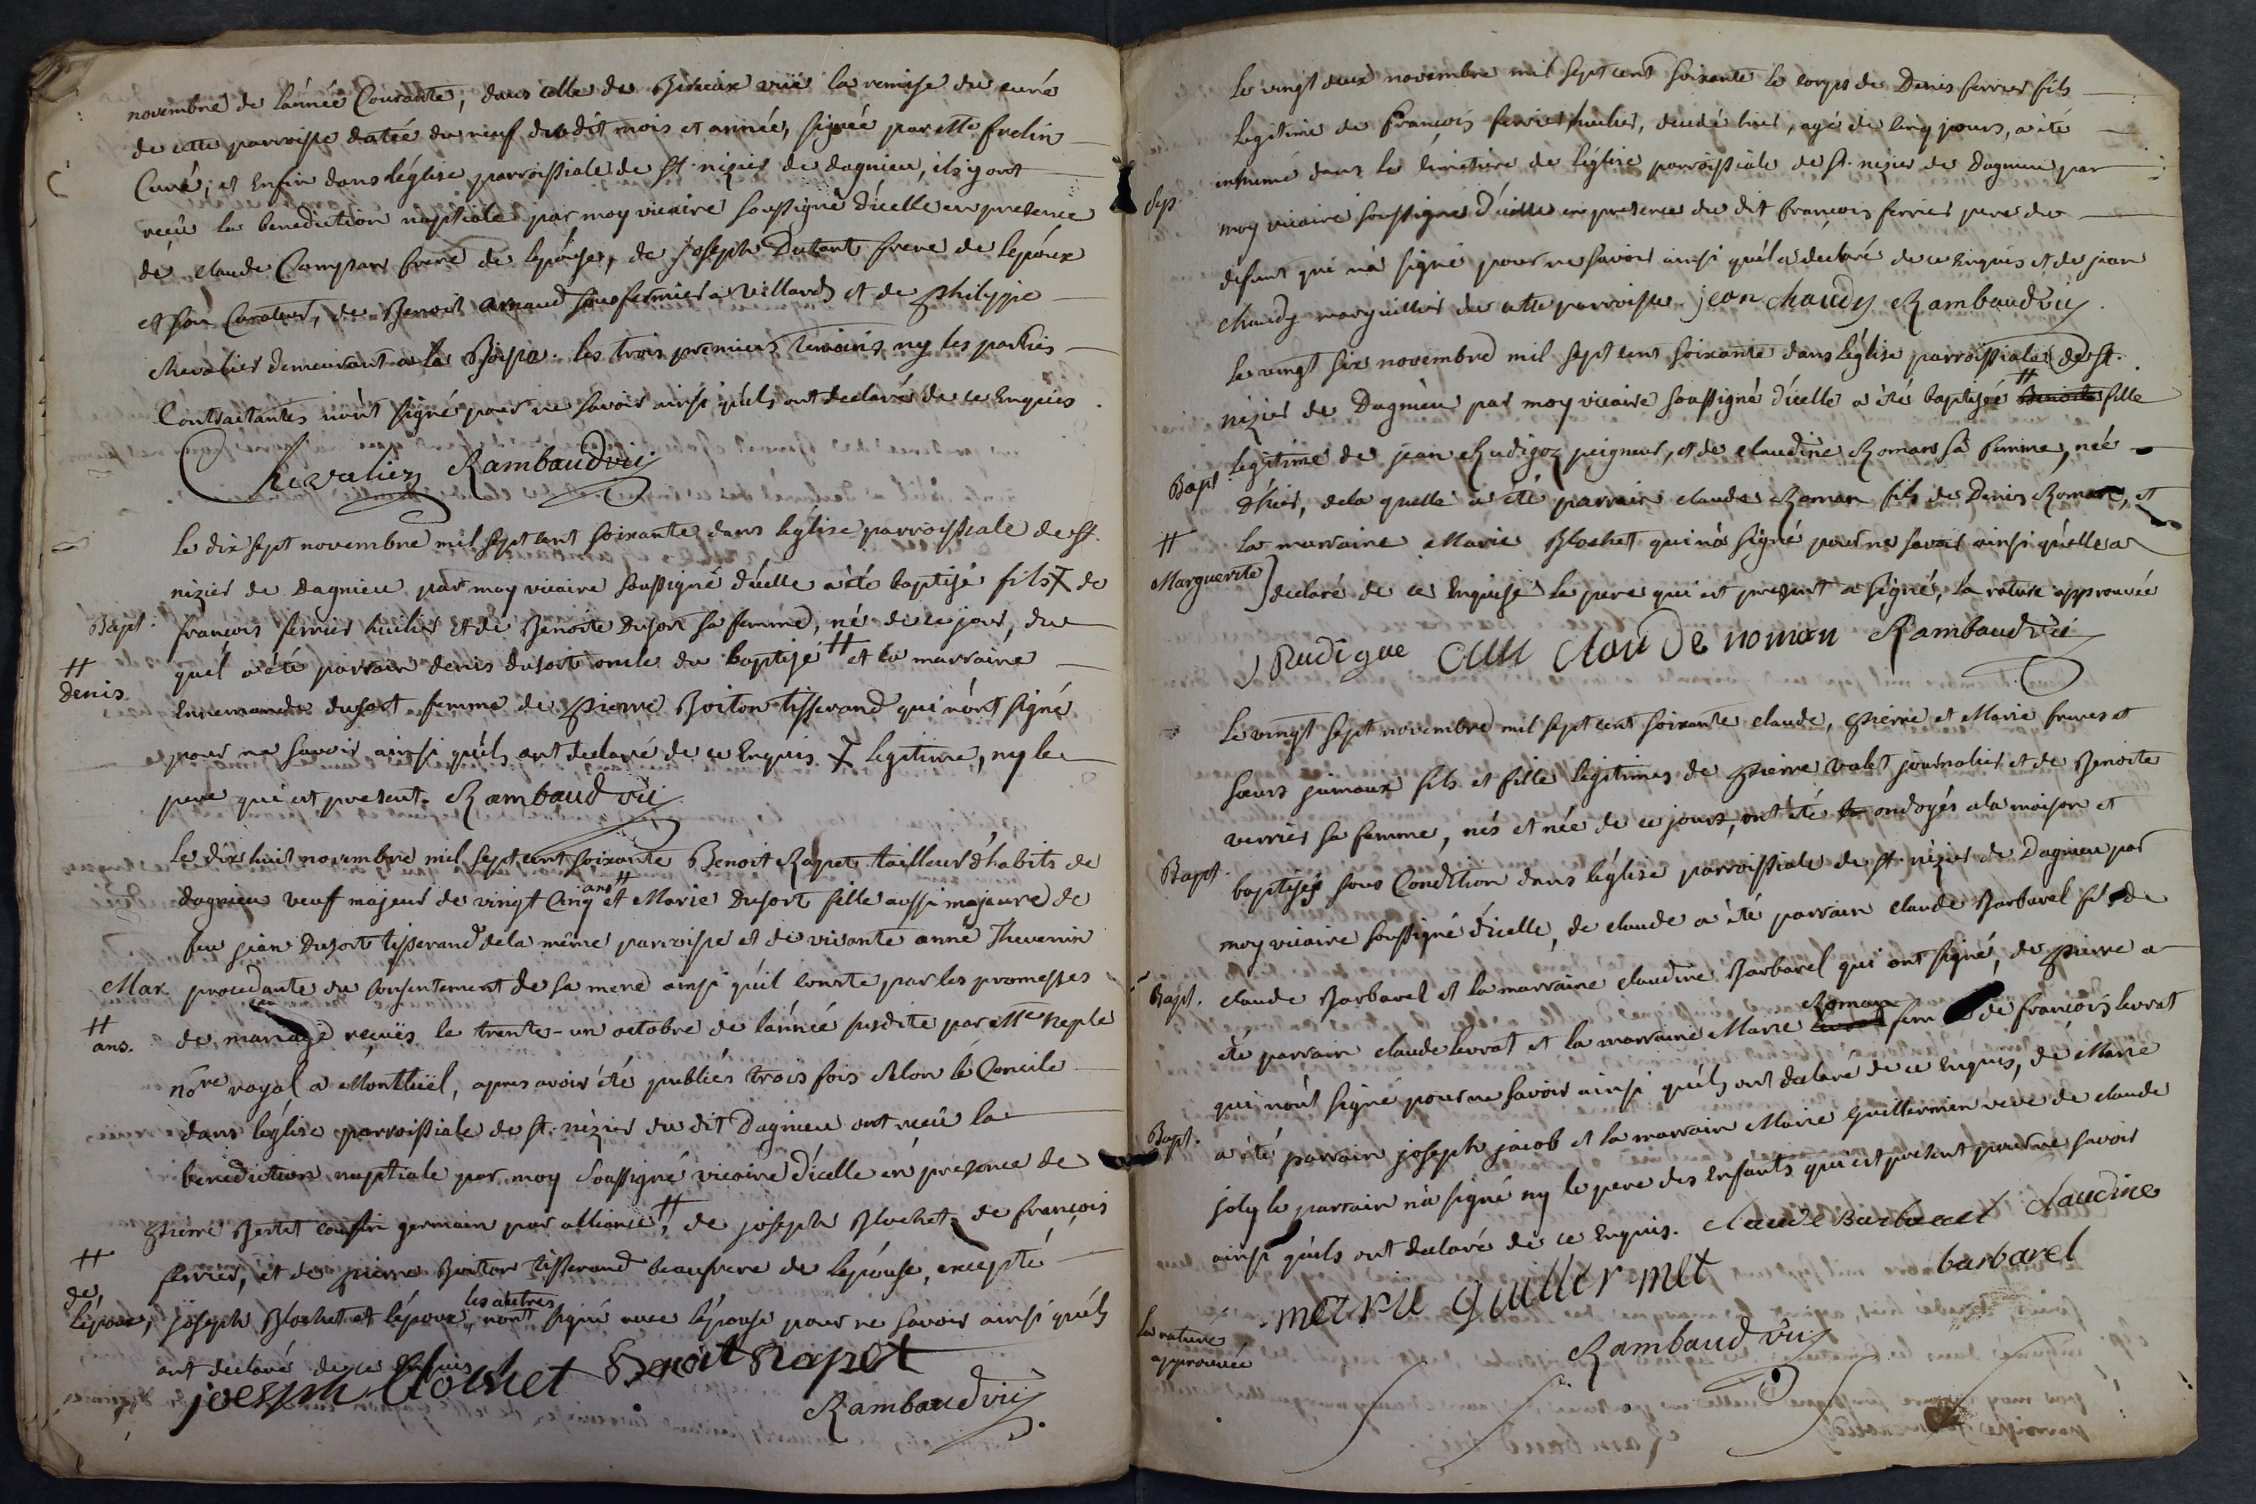 novembre de l'année Courante, dans celle de vüe la remise du curé
de cette parroisse datée du neuf dudit mois et année, signée par Mre frelin
Curé, et Enfin dans l'église parroissiale de St. nizier de dagnieu, ils y ont
recû la benediction nuptiale par moy vicaire soussigné d'icelle en presence
de claude frere de l'épouse, de joseph Dutant frere de l'époux
et son Curateur, de Benoit arnaud sousfermier a Villards et de Philippe
chevalier demeurant a la Boisse. les trois premiers temoins ny les parties
Contractantes n'ont signé pour ne savoir ainsi qu'ils ont declaré de ce Enquis.
Chevalier Rambaud vic
le dix sept novembre mil sept cent soixante dans l'église parroissiale de St.
nizier de dagnieu par moy vicaire soussigné d'icelle a été baptisé fils ⨍ de
Bapt.
françois ferrier huilier et de Benoite Dusort sa femme, né de ce jour, du
quel a été parrain denis dusort oncle du baptisé ++ et la marraine
++
denis
Ennemonde dusort femme de Pierre Boiton tisserand qui n'ont signé
pour ne savoir ainsi qu'ils ont declaré de ce Enquis ⨍ legitime, ny le
pere qui est present. Rambaud vic
Le dix huit novembre mil sept cent soixante Benoit Rapet tailleur d'habits de
dagnieu veuf majeur de vingt Cinq ans ++ et Marie Dusort fille aussi majeure de
feu jean Dusort tisserand de la même parroisse et de vivante anne Thevenin
Mar.
procedante du consentement de sa mere ainsi qu'il conste par les promesses
++
ans.
de mariage reçuës le trente-un octobre de l'année susdite par Mre Neple
nore royal a Montluël, apres avoir été publiés trois fois selon le Concile
dans l'église parroissiale de St. nizier du dit Dagnieu ont recû la
benediction nuptiale par moy Soussigné vicaire d'icelle en presence de
Pierre Bertet cousin germain par alliance ++, de joseph Blochet, de françois
++
de
l'époux,
ferrier, et de pierre Boiton tisserand beaufrere de l'épouse, excepté
joseph Blochet et l'époux, les autres n'ont signé avec l'épouse pour ne savoir ainsi qu'ils
ont declaré de ce Enquis
joesph blochet Benoit Rapet
Rambaud vic
Le vingt deux novembre mil sept cent soixante le corps de Denis ferrier fils
legitime de François ferrier huilier, decedé hier, agé de cinq jours, a été
inhumé dans le cimetiere de l'église parroissiale de St. nizier de Dagnieu par
Sep.
moy vicaire soussigné d'icelle en presence du dit françois ferrier pere du
defunt qui n'a signé pour ne savoir ainsi qu'il a declaré de ce enquis et de jean
chaudy marguillier de cette parroisse. jean chaudy Rambaud vic
Le vingt six novembre mil sept cent soixante dans l'église parroissiale de St.
nizier de Dagnieu par moy vicaire soussigné d'icelle a été baptisée ++ Benoite fille
legitime de jean Rudigoz peigneur, et de claudine Roman sa femme, née
Bapt.
d'hier, de la quelle a été parrain claude Roman fils de Denis Roman, et
++
Marguerite
la marraine Marie Blochet qui n'a signé pour ne savoir ainsi qu'elle a
declaré de ce Enquise le pere qui est present a signé, la rature approuvée
J Rudigue Claude roman Rambaud vic
Le vingt sept novembre mil sept cent soixante claude, Pierre et Marie freres et
sœurs jumeaux fils et fille legitimes de Pierre valet journalier et de Benoite
verrier sa femme, nés et née de ce jours, ont été ondoyés a la maison et
Bapt.
baptisés sous Condition dans l'église parroissiale de St. nizier de Dagnieu par
moy vicaire soussigné d'icelle, de claude a été parrain claude Barbarel fils de
Bapt.
claude Barbarel et la marraine claudine Barbarel qui ont signé, de Pierre a
été parrain claude levrat et la marraine Marie levrat Roman femme de françois levrat
qui n'ont signé pour ne savoir ainsi qu'ils ont declaré de ce enquis, de Marie
Bapt.
a été parrain joseph jacob et la marraine Marie Guillermin veve de claude
joly le parrain n'a signé ny le pere des Enfants qui est present pour ne savoir
ainsi qu'ils ont declaré de ce Enquis. claude Barbarel claudine
barbarel
marie guillermet
la rature
approuvée
Rambaud vic